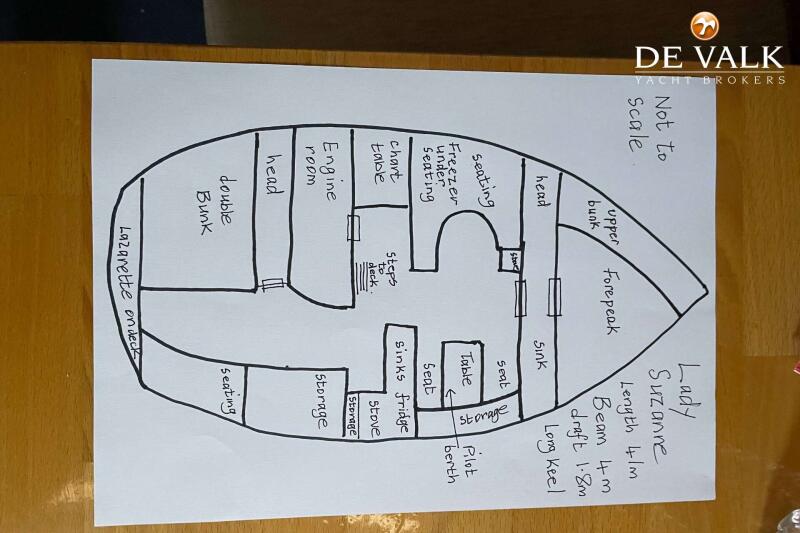 DE VALK
YACHT BROKERS
Not to
Scale.
upper
bunk
Forepeak
head
sink
seating
Freezer
under
seating
Store
chart
table
steps
to
deck.
Engine
room
head
double
Bunk
Lazarette on deck
seating
storage
storage
stove
sinks fridge
seat
Table
seat
storage
Pilot
berth
Lady
Suzanne
Length 41m
Beam 4m
draft 1.8m
Long Keel